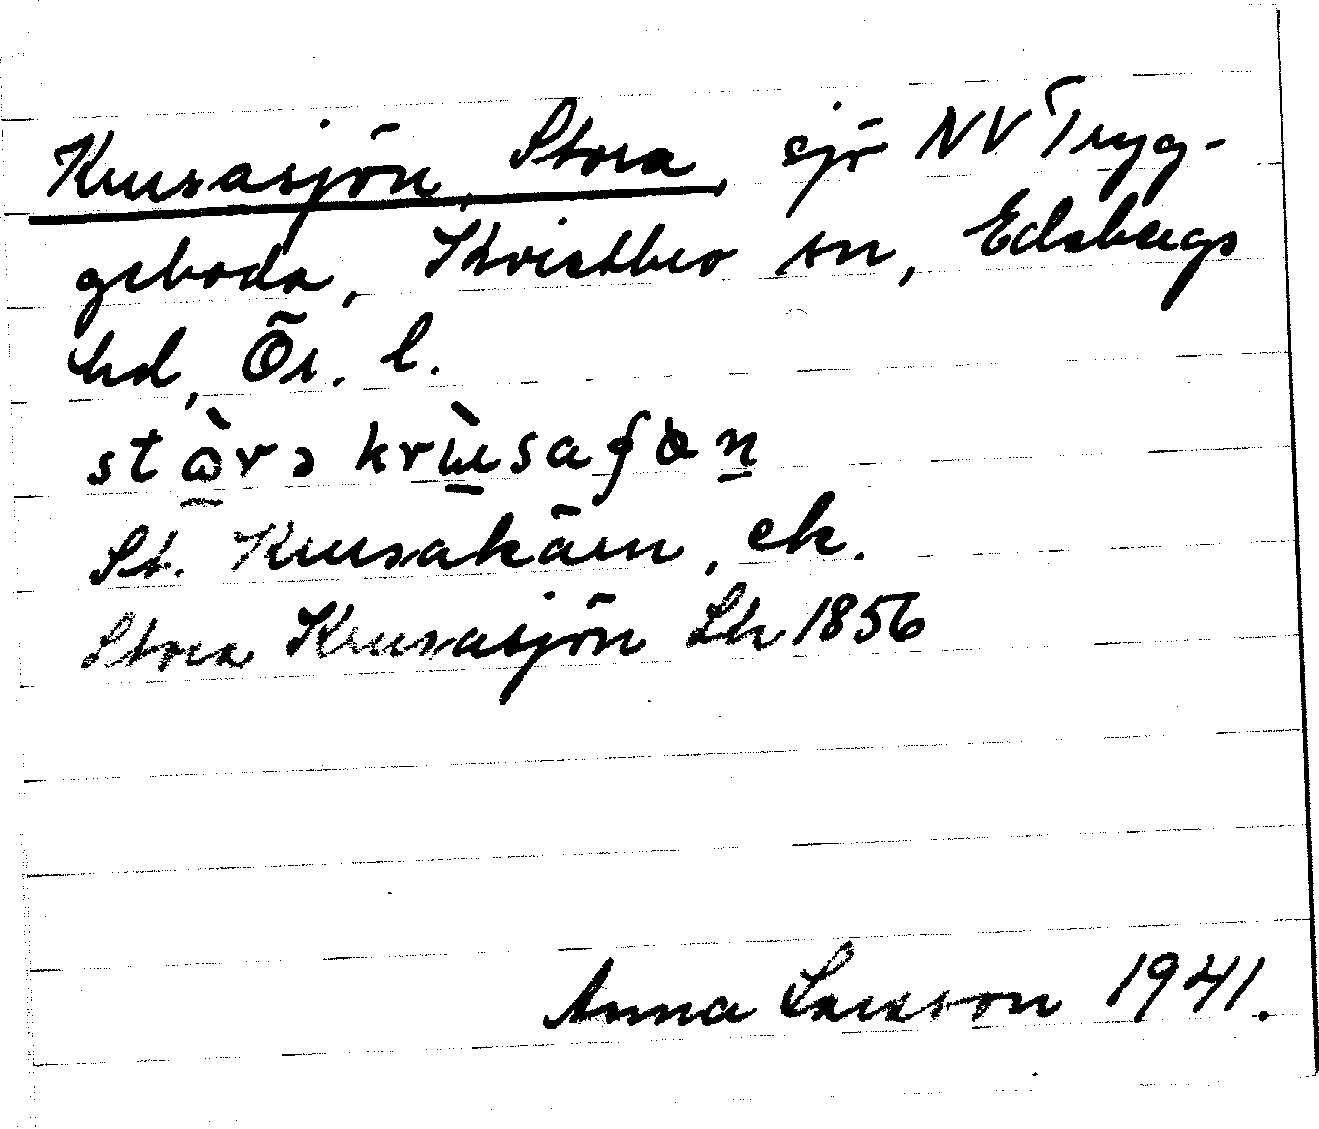 Krusasjön, Stora, sjö NV Tryg-
geboda, Kvistbro sn, Edsbergs
hd, Ör. l.
stɷ̀rɔ krùsaʃøn
St. Krusakärn, ek.
Stora Krusasjön Lk 1856
Anna Larsson 1941.